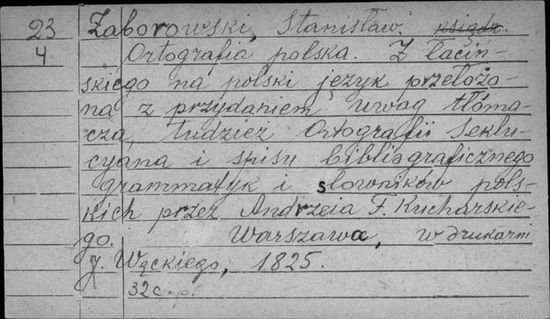 23 Zaborowski, Stanisław. ksiądz.
4 Ortografia polska. Z łaciń-
skiego na polski język przełożo-
na z przydaniem uwag tłóma-
cza, tudzież Ortografii Seklu-
cyana i spisu bibliograficznego
grammatyk i słowników pols-
kich przez Andrzeia F. Kucharskie-
go. Warszawa, w drukarni
J. Węckiego, 1825.